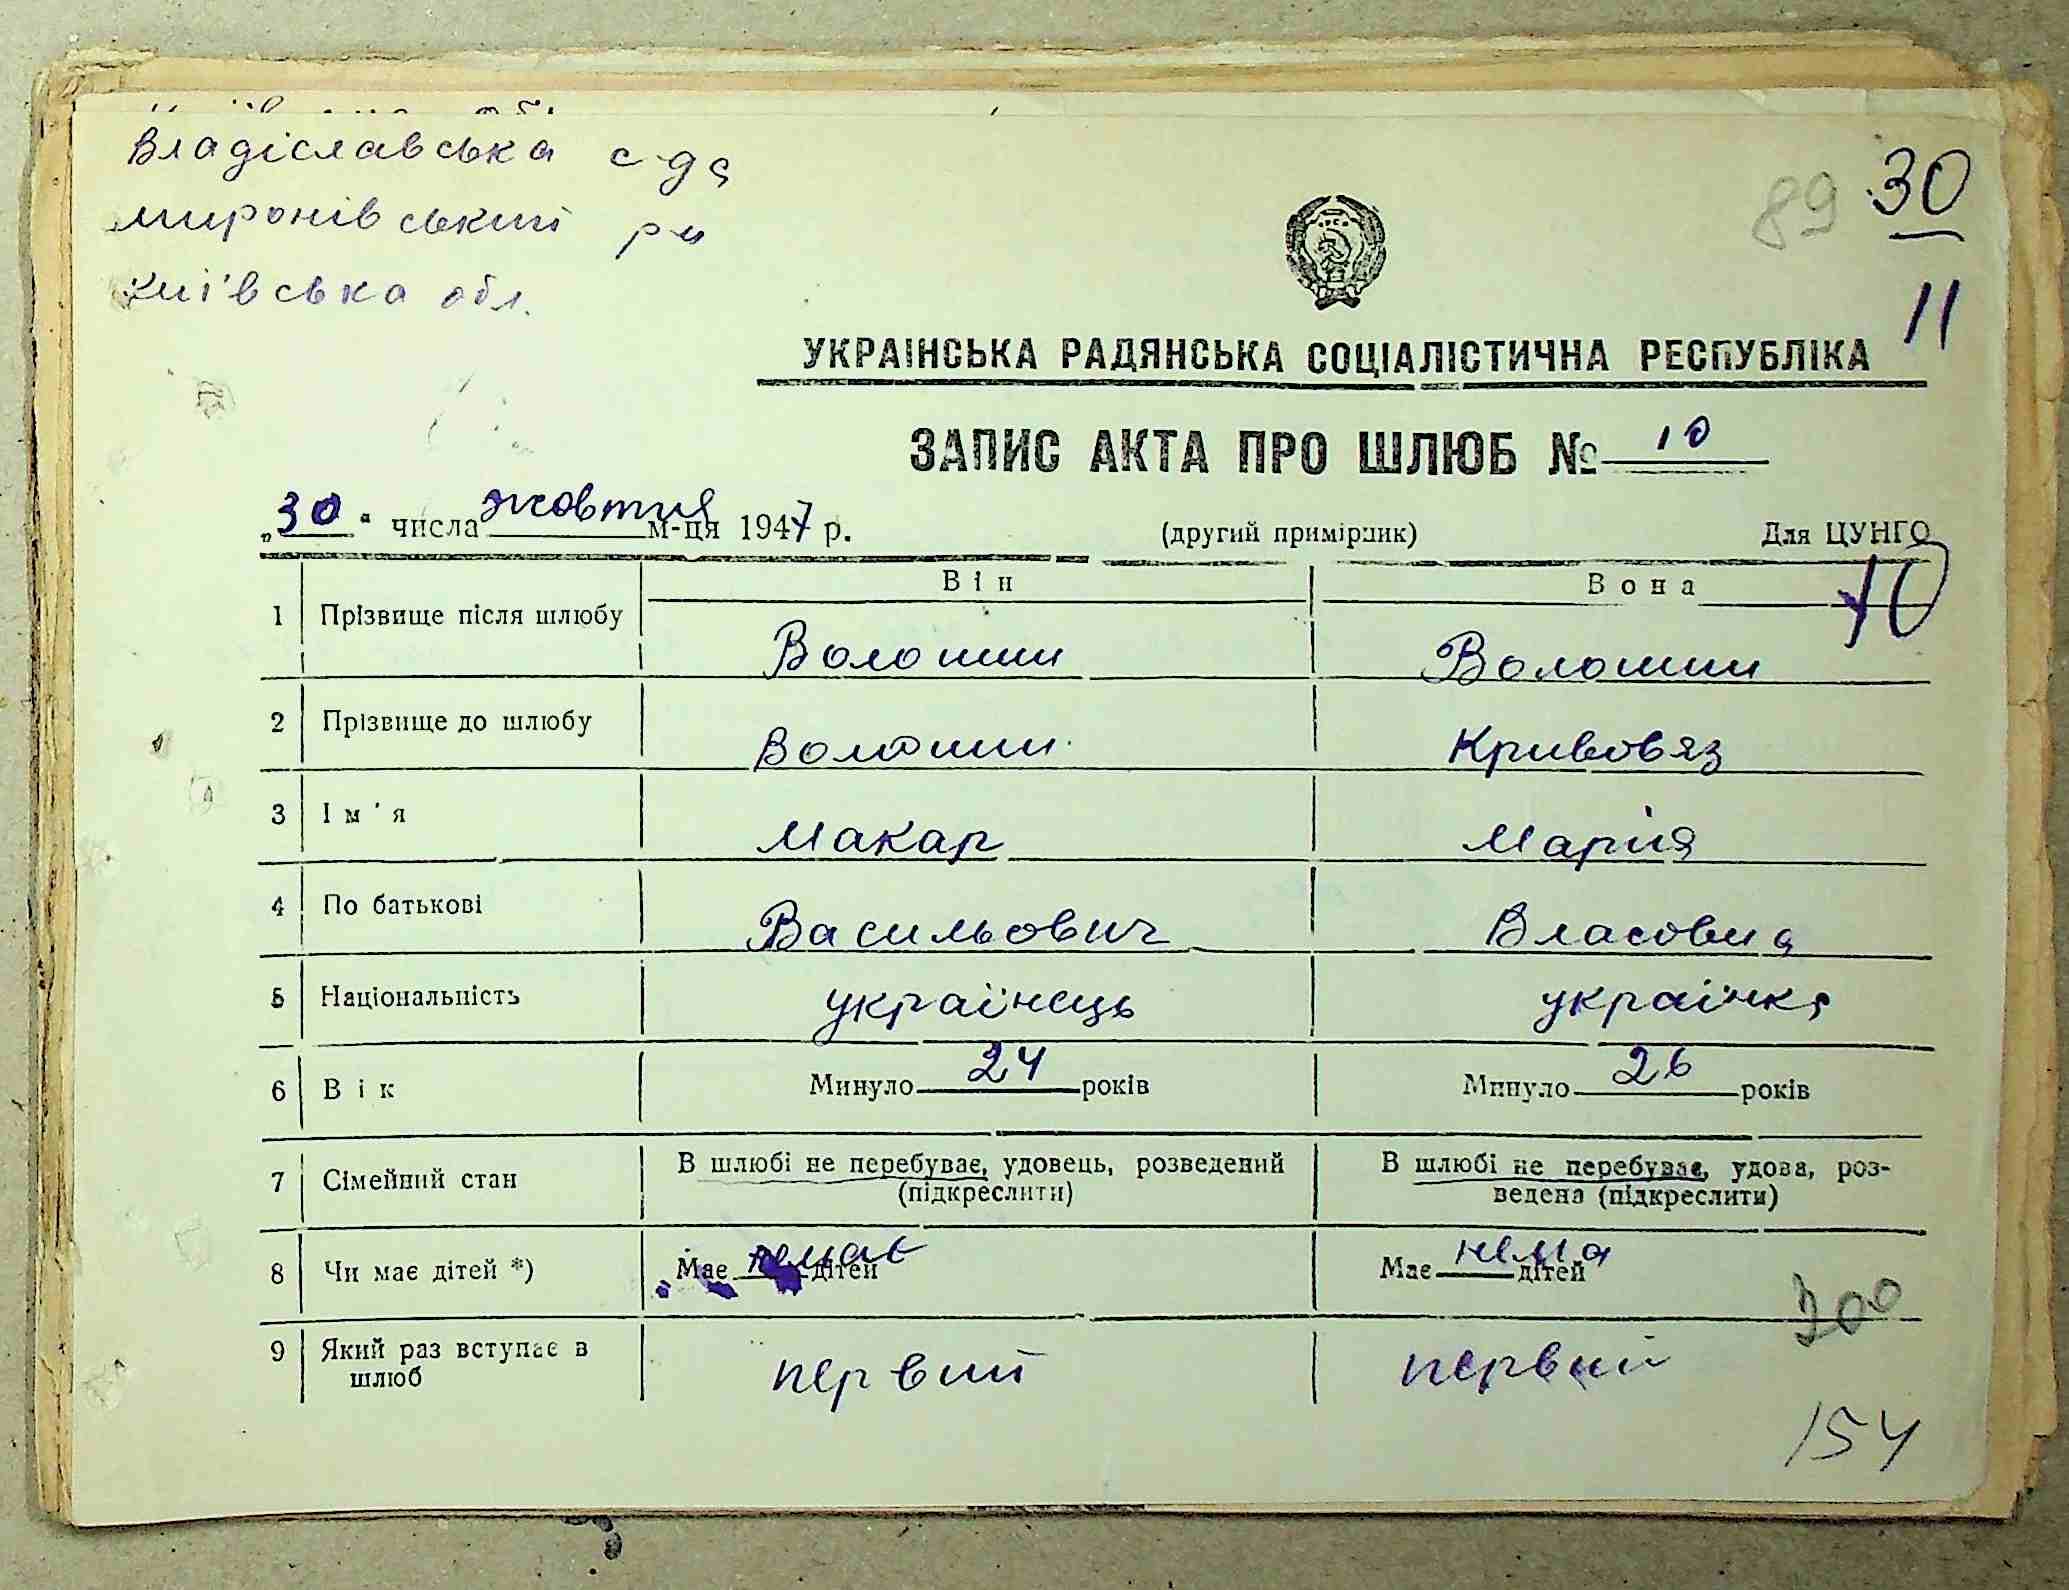 Владіславська с-да
миронівський р-н
київська обл.
89 30
11
УКРАЇНСЬКА РАДЯНСЬКА СОЦІАЛІСТИЧНА РЕСПУБЛІКА
ЗАПИС АКТА ПРО ШЛЮБ № 10
„30“ числа жовтня м-ця 1947 р. (другий примірник) Для ЦУНГО
10
Він Вона
1 Прізвище після шлюбу Волошин Волошин
2 Прізвище до шлюбу Волошин Кривовяз
3 Ім'я Макар Марія
4 По батькові Васильович Власовна
5 Національність українець українка
6 Вік Минуло 24 років Минуло 26 років
7 Сімейний стан В шлюбі не перебуває, удовець, розведений (підкреслити) В шлюбі не перебуває, удова, роз-
ведена (підкреслити)
8 Чи має дітей *) Має немає дітей Має нема дітей
200
9 Який раз вступає в
шлюб первий первий
154